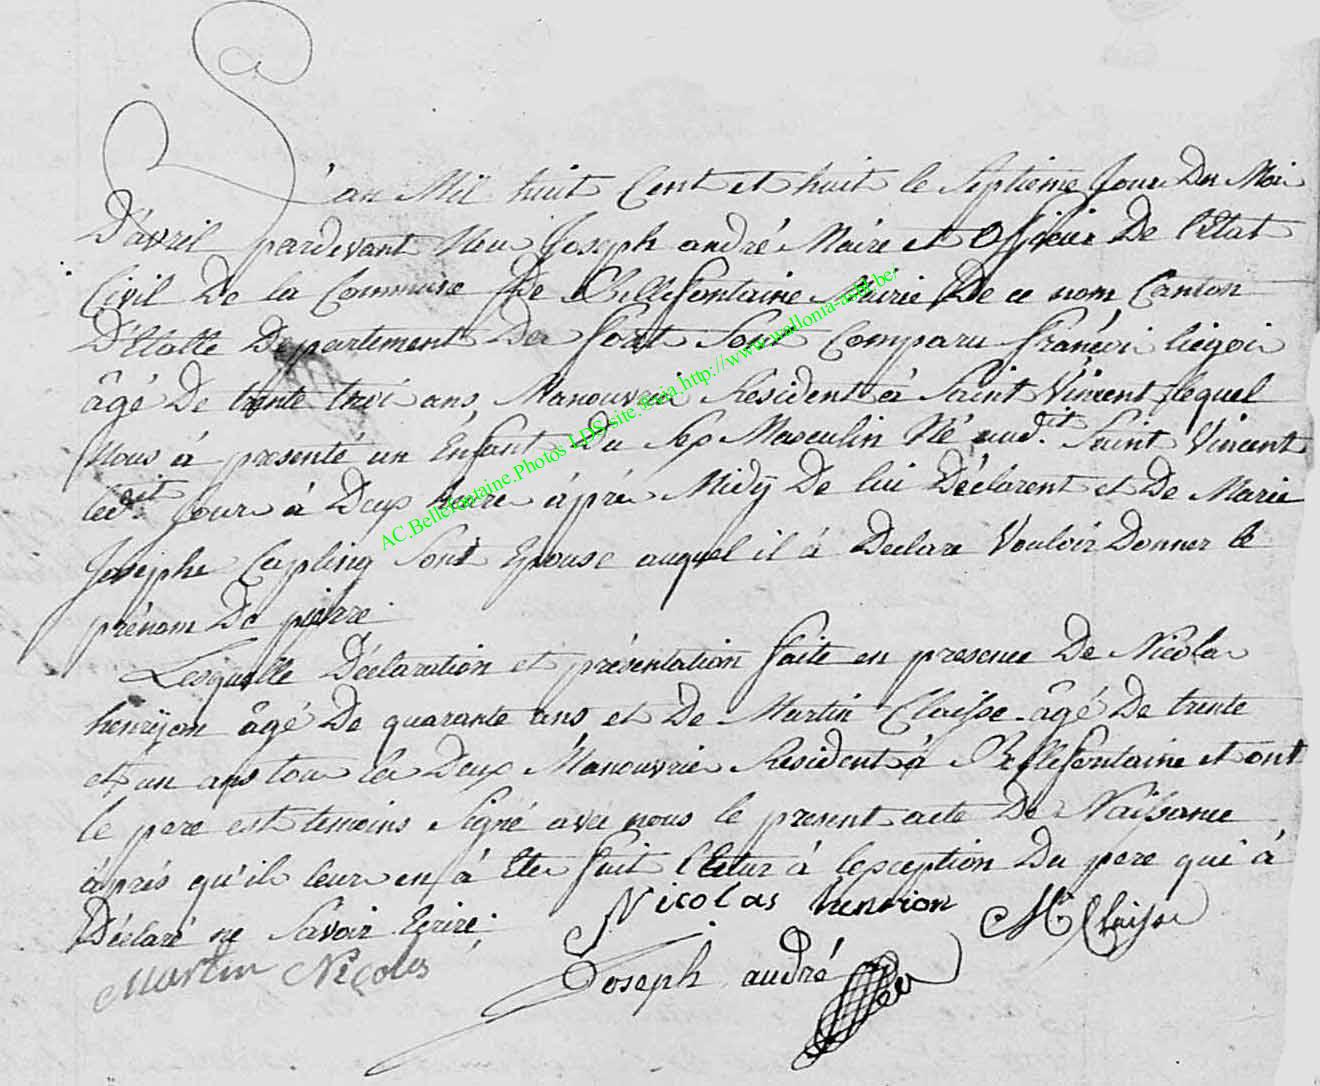 L'an Mil huit Cent et huit le Septieme Jour Du Moi
D'avril pardevant Nou Joseph andré Maire et Officier De l'Etat
Civil De la Commune De Bellefontaine Mairie De ce nom Canton
D'Etalle Département Des foret Sont Comparu françoi liégoi
âgé De trente troi ans, Manouvrié Résident à Saint Vincent lequel
Nous à présenté un Enfant Du Sex Masculin Né aud.it Saint Vincent
led.it Jour à Deux heure âprè Midÿ De lui Déclarent et De Marie
Josèphe Capling Sont Epouse auquel il à Déclare Vouloir Donner le
prénom De pierre.
Lesquelle Déclaration et présentation faite en presence De Nicola
henrÿon âgé De quarante ans et De Martin Claisse âgé De trente
et un ans tou les Deux Manouvrié Résident à Bellefontaine et ont
le pere est temoins Signé avec nous le present acte De Naissance
âprés qu'il leur en à Ete fait lectur à l'exception Du pere qui à
Déclaré ne Savoir Ecrire.
Nicolas henrion M Claisse
Martin Nicolas
Joseph andré
AC.Bellefontaine.Photos LDS.site http://www.wallonia-asbl.be.